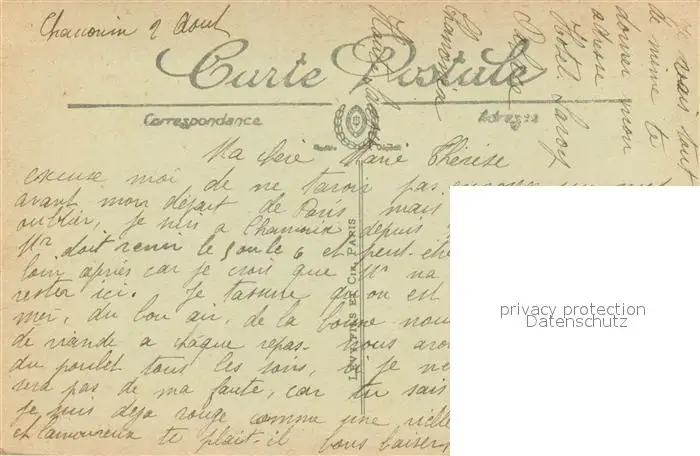 Chamonix 2 Aout
Carte Postale
Correspondance
Adresse
Ma chère Marie Thérèse
excuse moi de ne t'avoir pas
avant mon départ de Paris mais
oublier, je suis a Chamonix depuis
Mr doit venir le 5 ou le 6 et peut-etre
loin après car je crois que Mr na
rester ici. Je t'assure qu'on est
mer, du bon air, de la bonne nou
de viande a chaque repas. Nous avo
du poulet tous les soirs, si je ne
sera pas de ma faute, car tu sais
Je suis deja rouge comme une vielle
et l'amoureux te plait-il bons baisers
LEVY FILS ET CIE, PARIS
je vais tout
de même te
donner mon
adresse
Hotel Savoy
Palace
Chamonix
Haute Savoie
privacy protection
Datenschutz